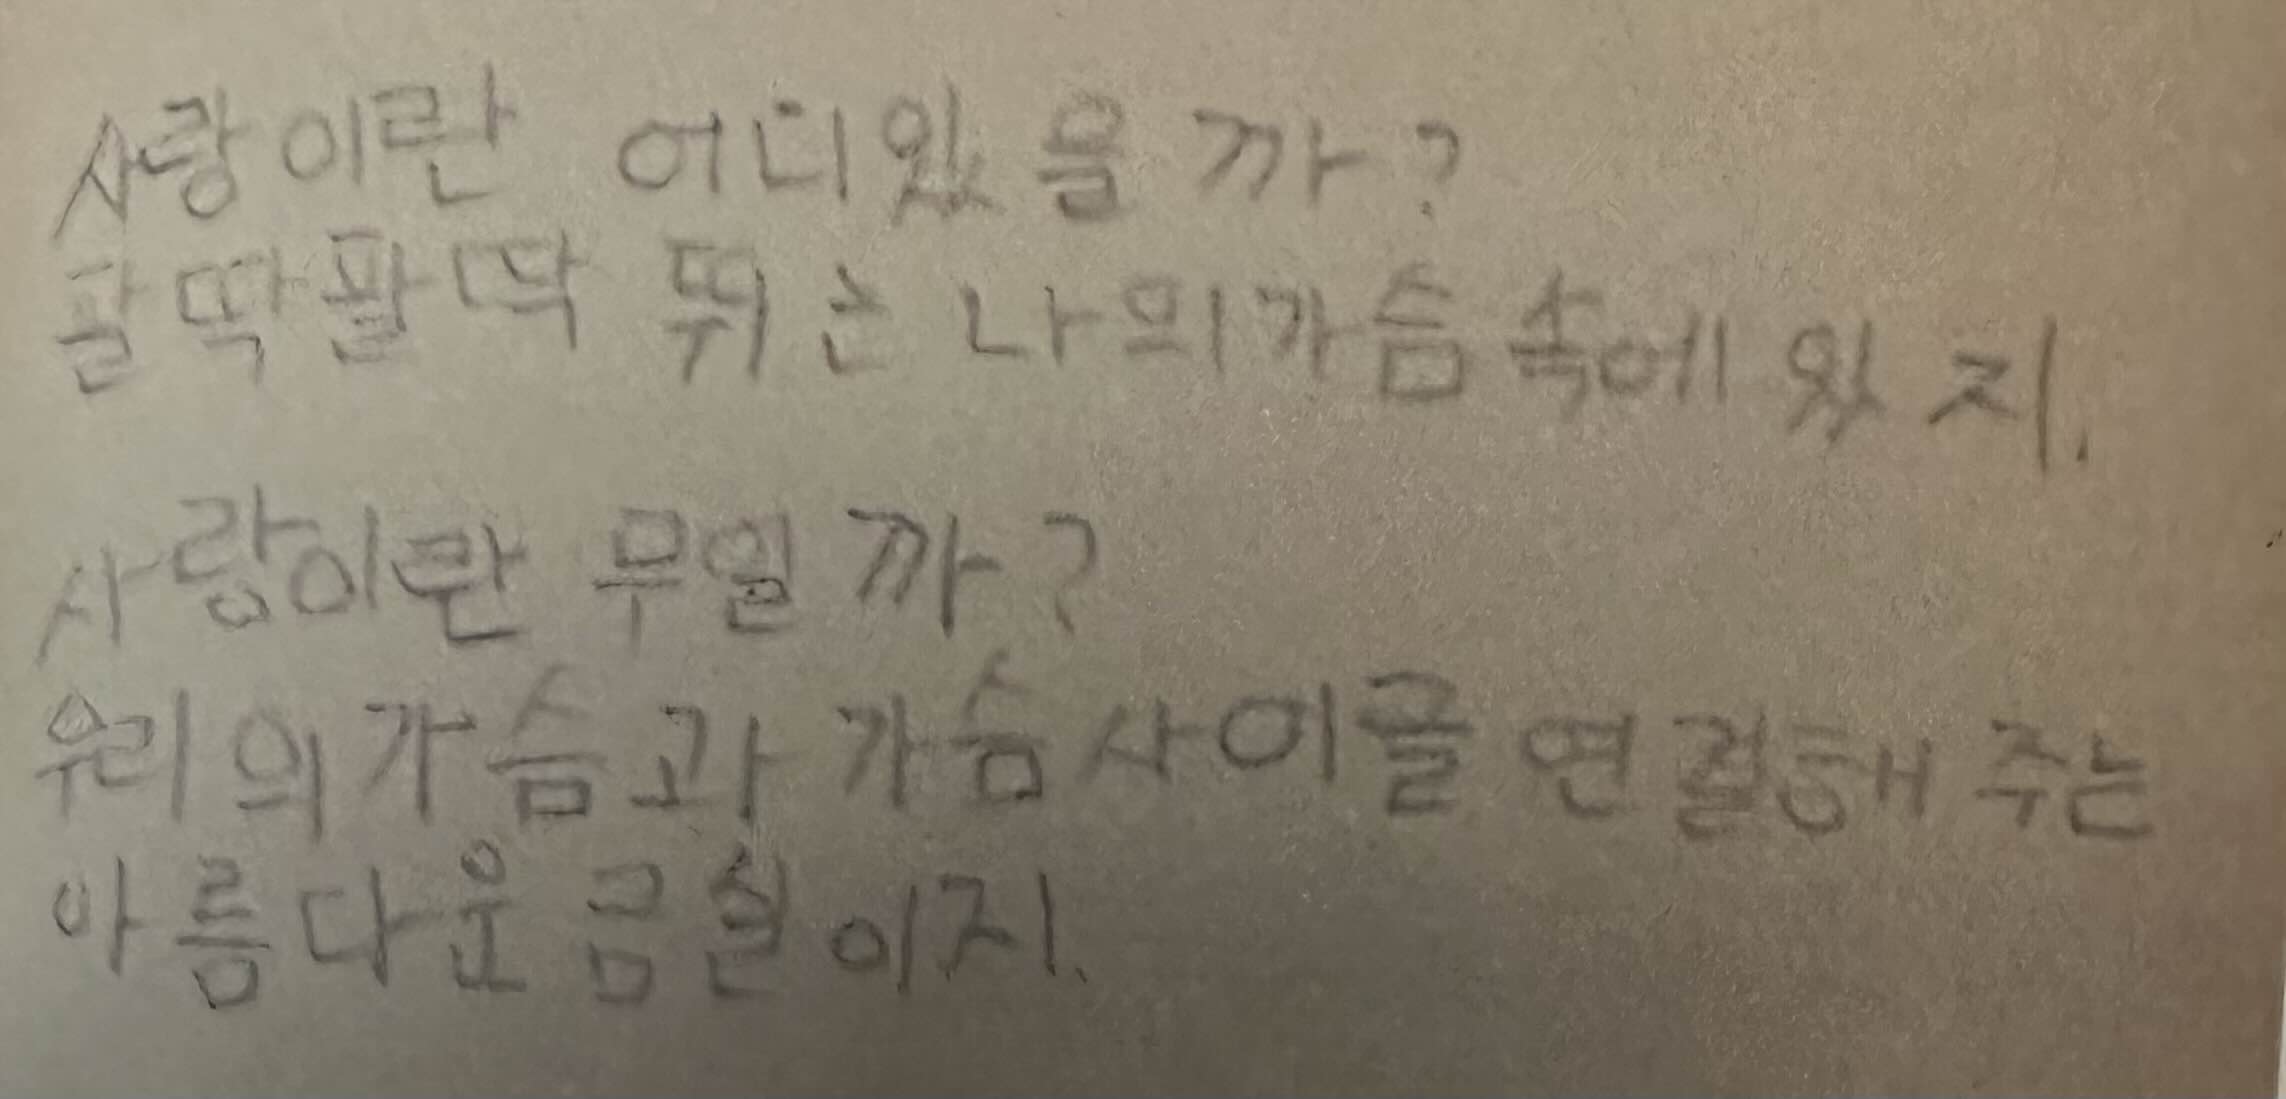 사랑이란 어디있을까?
팔딱팔딱 뛰는 나의가슴속에 있지.
사랑이란 무일까?
우리의 가슴과 가슴사이를 연결해 주는
아름다운 금실이지.